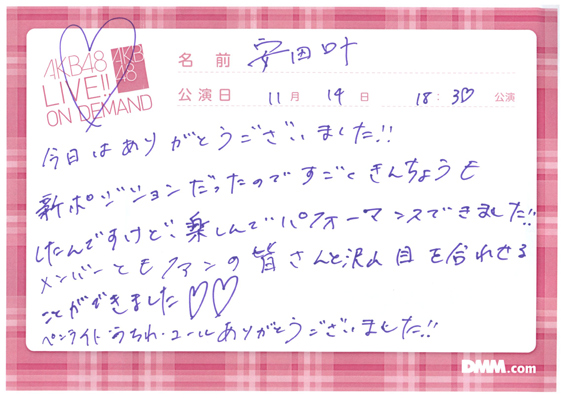 AKB48
LIVE!!
ON DEMAND
AKB
48
名前 安田叶
公演日 11月 14日 18:30 公演
今日はありがとうございました!!
新ポジションだったのですごくきんちょうも
したんですけど、楽しんでパフォーマンスできました!!
メンバーともファンの皆さんと沢山目を合わせる
ことができました♡♡
ペンライト・うちわ・コールありがとうございました!!
DMM.com